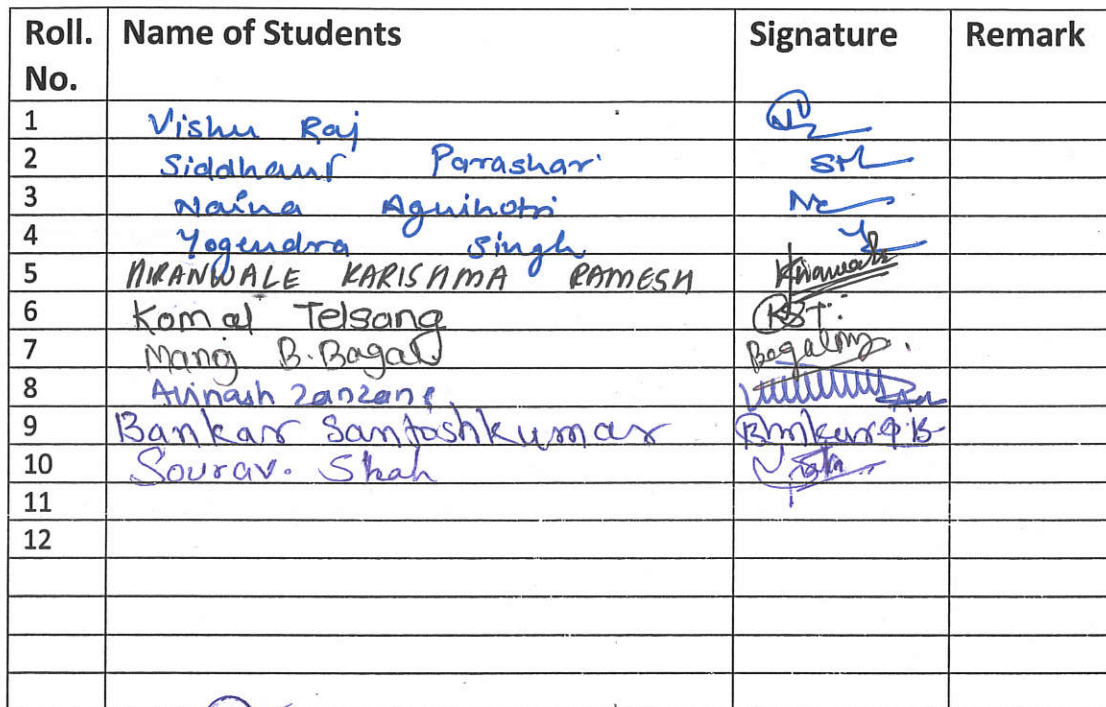 Roll. No. Name of Students Signature Remark
1 Vishu Raj
2 Siddhant Parashar
3 Naina Agnihotri
4 Yogendra Singh
5 HIRANWALE KARISHMA RAMESH
6 Komal Telsang KST.
7 Manoj B. Bagal
8 Avinash Zanzane
9 Bankar Santoshkumar
10 Sourav. Shah
11
12